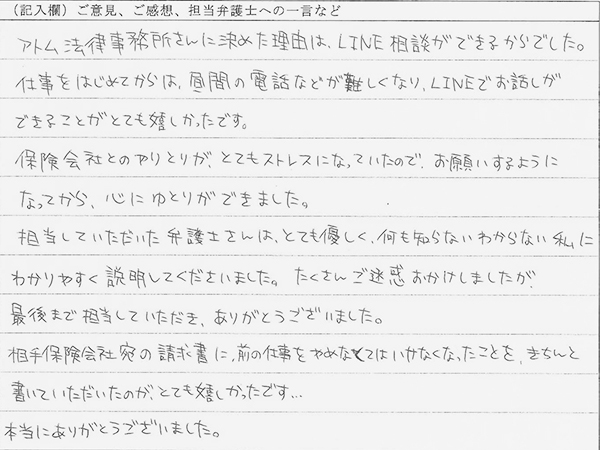 (記入欄) ご意見、ご感想、担当弁護士への一言など
アトム法律事務所さんに決めた理由は、LINE相談ができるからでした。
仕事をはじめてからは、昼間の電話などが難しくなり、LINEでお話しが
できることがとても嬉しかったです。
保険会社とのやりとりが とてもストレスになっていたので、お願いするように
なってから、心にゆとりができました。
担当していただいた弁護士さんは、とても優しく、何も知らないわからない私に
わかりやすく説明してくださいました。 たくさんご迷惑おかけしましたが、
最後まで担当していただき、ありがとうございました。
相手保険会社宛の請求書に、前の仕事をやめなくてはいけなくなったことを、きちんと
書いていただいたのが、とても嬉しかったです…
本当にありがとうございました。